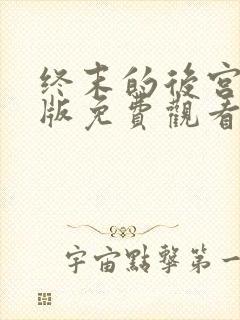 终末的後宫
版免費觀看
宇宙點擊第一